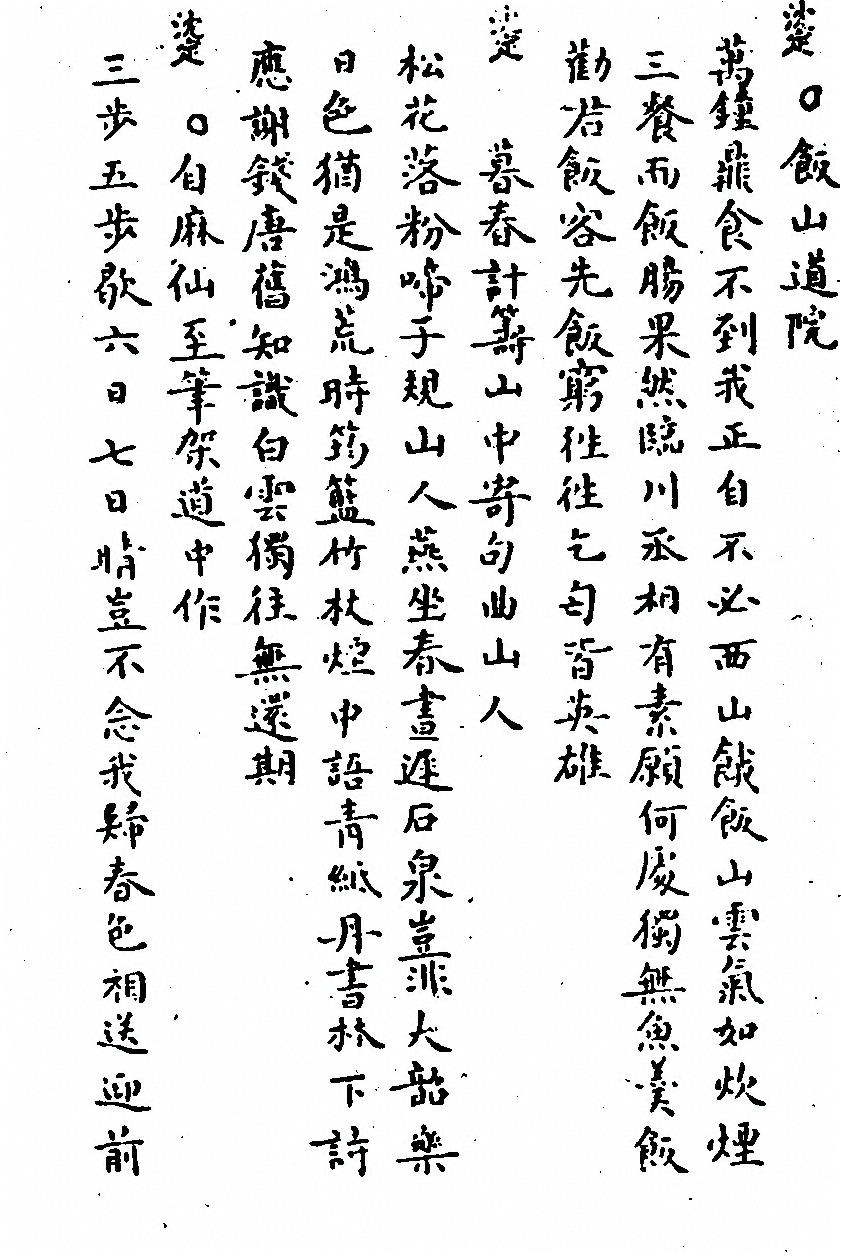 ○飯山道院
萬鐘鼎食不到我正自不必西山餓飯山雲氣如炊煙
三餐而飯腸果然臨川丞相有素願何處獨無魚羹飯
勸君飯客先飯窮往往乞匄皆英雄
暮春計籌山中寄句曲山人
松花落粉啼子規山人燕坐春晝遲石泉豈非大韶樂
日色猶是鴻荒時筠籃竹杖煙中語青紙丹書林下詩
應謝錢唐舊知識白雲獨往無還期
○自麻仙至筆架道中作
三步五步歇六日七日晴豈不念我歸春色相送迎前